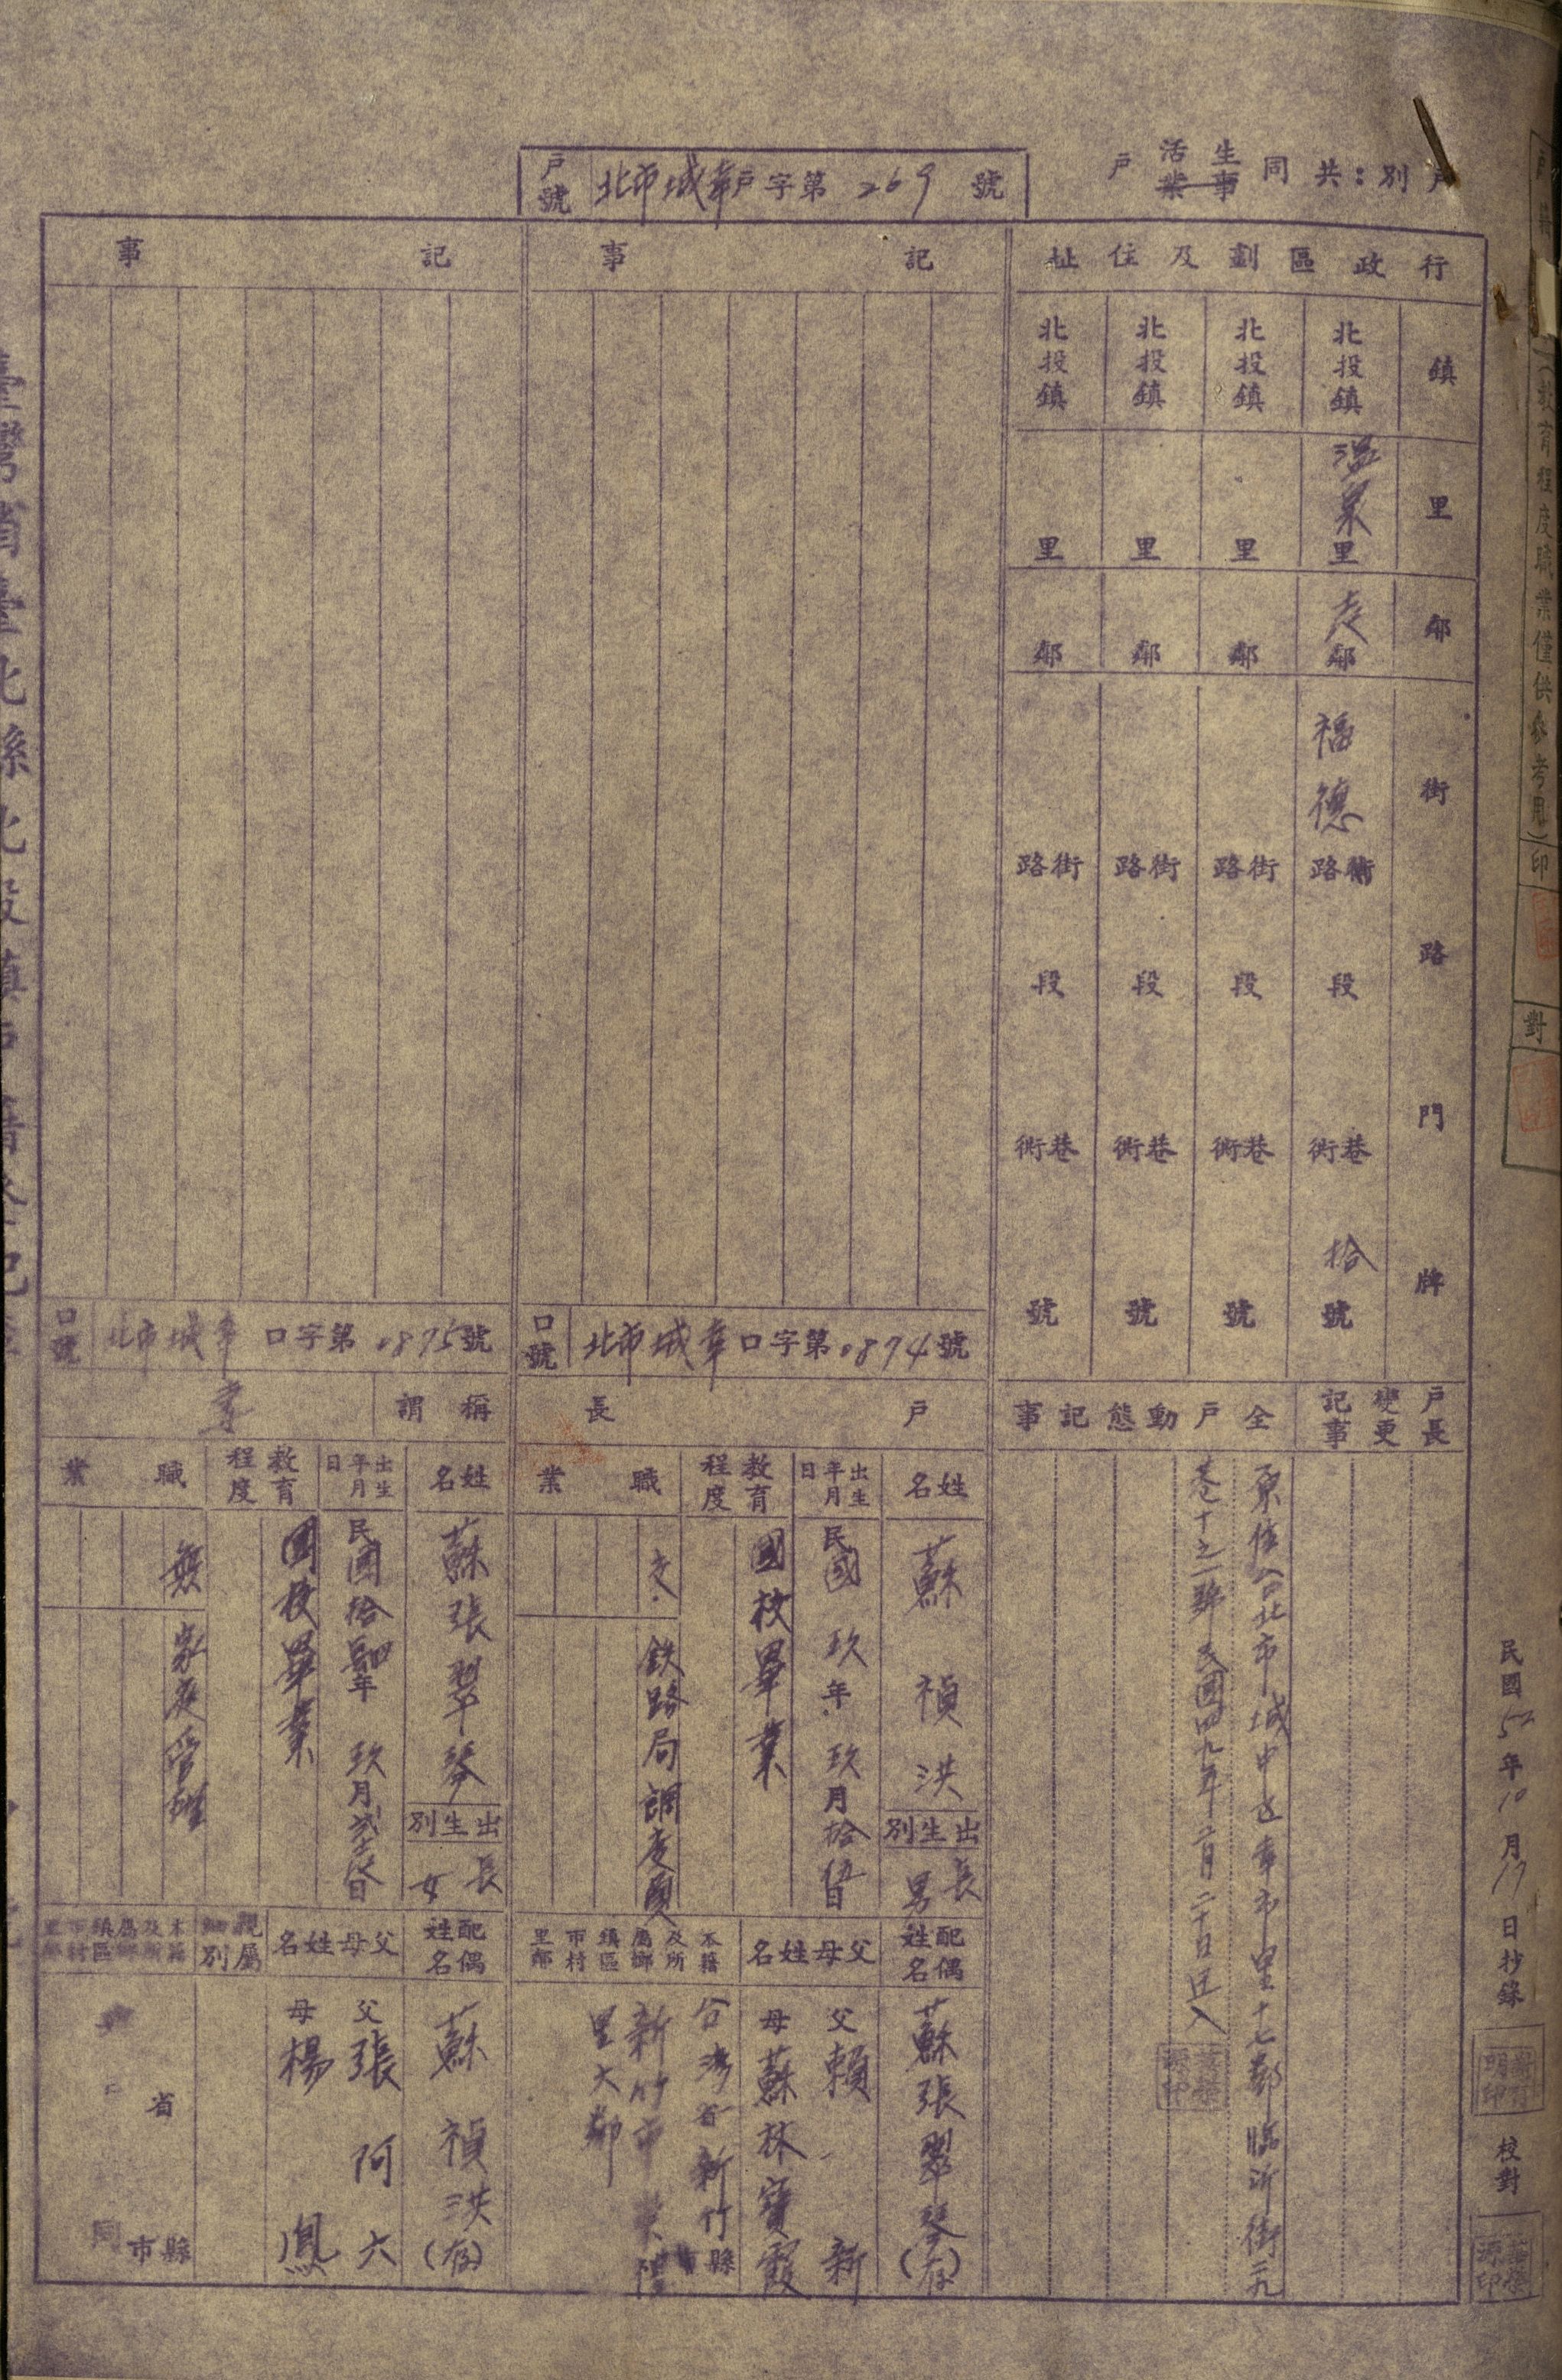 戶別：共同生活事業戶
戶號 北市城幸戶字第269號
行政區劃及住址
鎮 里 鄰 街路門牌
北投鎮 溫泉里 鄰 福德路街 段 巷衖 拾號
北投鎮 里 鄰 街路 段 巷衖 號
北投鎮 里 鄰 街路 段 巷衖 號
北投鎮 里 鄰 街路 段 巷衖 號
戶長變更記事
全戶動態記事
原住台北市城中區幸市里十七鄰臨沂街元
巷十之一號民國四九年二月二十日遷入
記事
口號 北市城幸口字第0874號
戶長
姓名 蘇禎洪
出生別 長男
出生年月日 民國玖年玖月拾伍日
教育程度 國校畢業
職業 交 鉄路局調度員
配偶姓名 蘇張翠琴(存)
父母姓名 父 賴新
母 蘇林寶霞
本籍及所屬鄉鎮區市村里鄰
台灣省新竹縣
新竹市
里六鄰
記事
口號 北市城幸口字第0875號
稱謂 妻
姓名 蘇張翠琴
出生別 長女
出生年月日 民國拾肆年玖月日
教育程度 國校畢業
職業 無 家庭管理
配偶姓名 蘇禎洪(存)
父母姓名 父 張阿六
母 楊鳳
親屬細別
本籍及所屬鄉鎮區市村里鄰
省
縣市
同
(教育程度職業僅供參考用)印
對
民國52年10月17日抄錄
校對